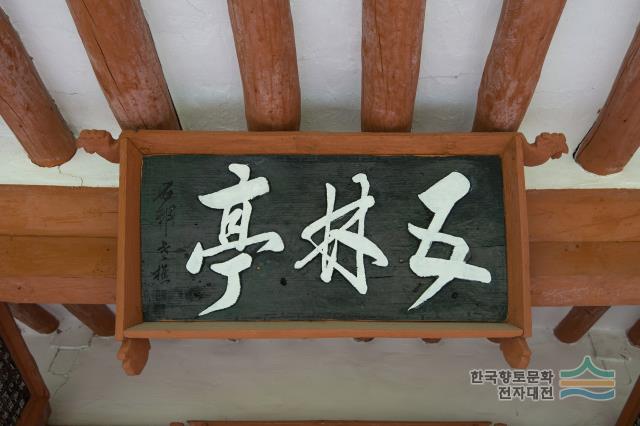 五林亭
石邨
한국향토문화
전자대전